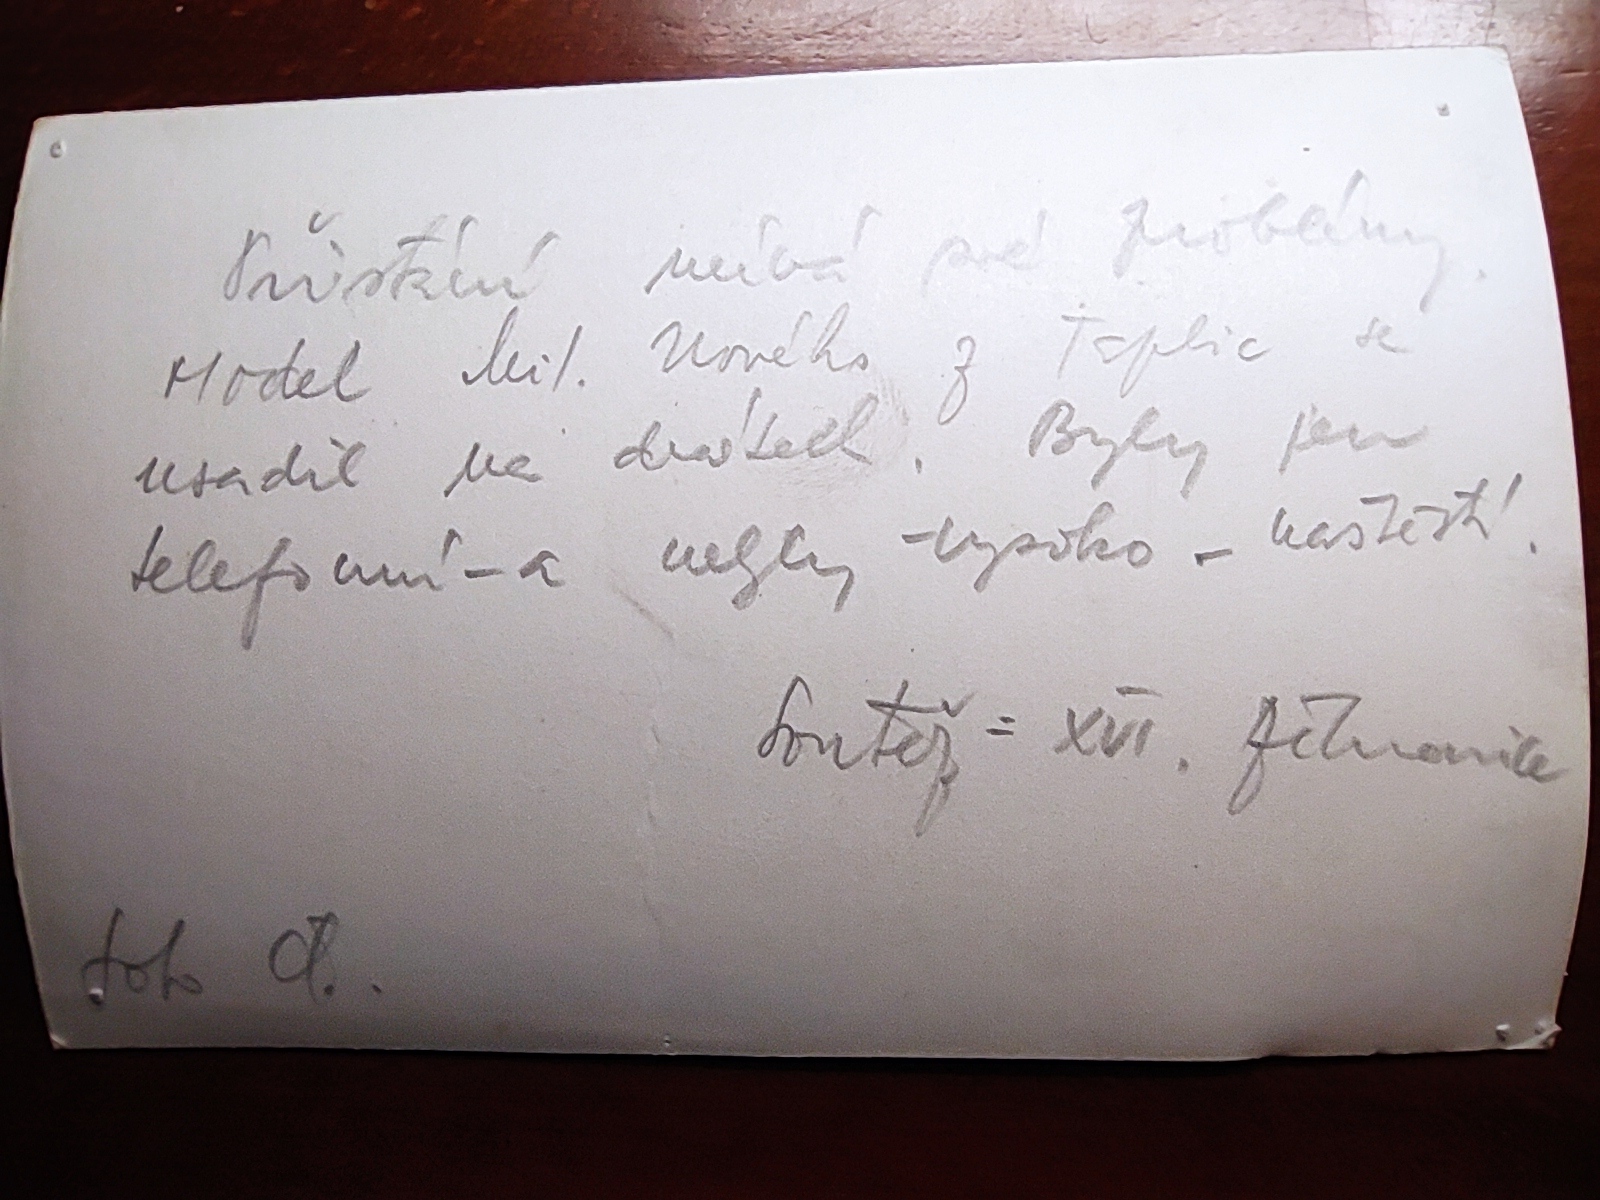 Přistání mívá své problémy.
Model Mil. Nového z Teplic se
usadil na drátech. Byly jen
telefonní - a nebyly - vysoko - naštěstí.
Soutěž = XVI.
foto